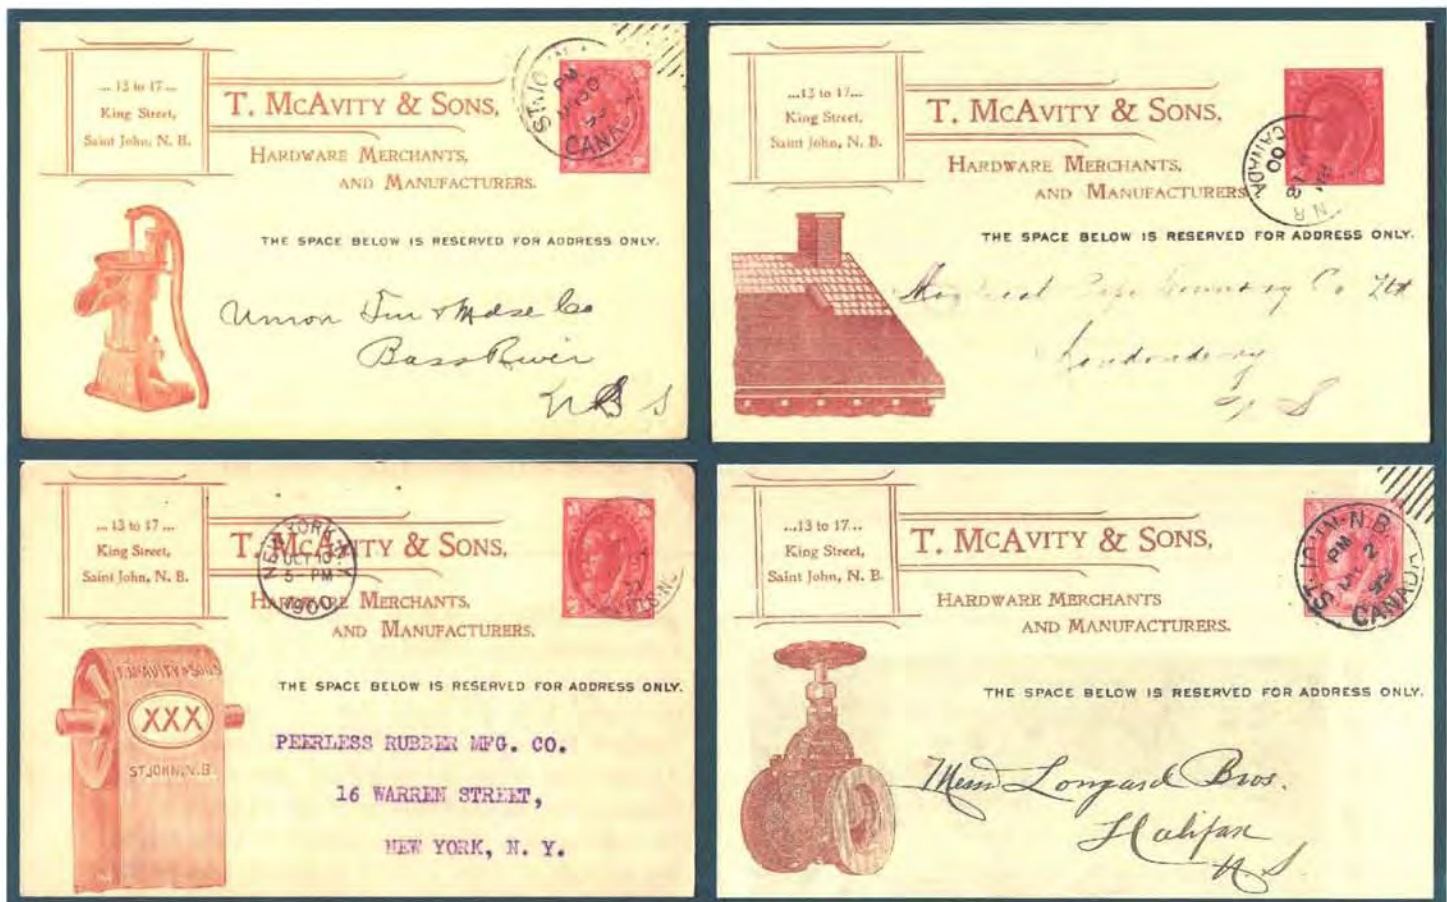 ...13 to 17...
King Street,
Saint John, N. B.
T. McAvity & Sons,
Hardware Merchants,
and Manufacturers.
PM
CANADA
THE SPACE BELOW IS RESERVED FOR ADDRESS ONLY.
Union Fur & Mdse Co
Bass River
N S
...13 to 17...
King Street,
Saint John, N. B.
T. McAvity & Sons,
Hardware Merchants,
and Manufacturers
CANADA
00
THE SPACE BELOW IS RESERVED FOR ADDRESS ONLY.
Montreal Pipe Foundry Co Ltd
Londonderry
N S
...13 to 17...
King Street,
Saint John, N. B.
T. McAvity & Sons,
Hardware Merchants,
and Manufacturers.
NEW YORK, N.Y.
OCT 13
5-PM
1900
T. McAVITY & SONS
XXX
ST. JOHN, N.B.
THE SPACE BELOW IS RESERVED FOR ADDRESS ONLY.
PEERLESS RUBBER MFG. CO.
16 WARREN STREET,
NEW YORK, N. Y.
...13 to 17...
King Street,
Saint John, N. B.
T. McAvity & Sons,
Hardware Merchants
and Manufacturers.
ST. JOHN. N.B.
PM 2
CANADA
THE SPACE BELOW IS RESERVED FOR ADDRESS ONLY.
Messrs Longard Bros.
Halifax
N. S